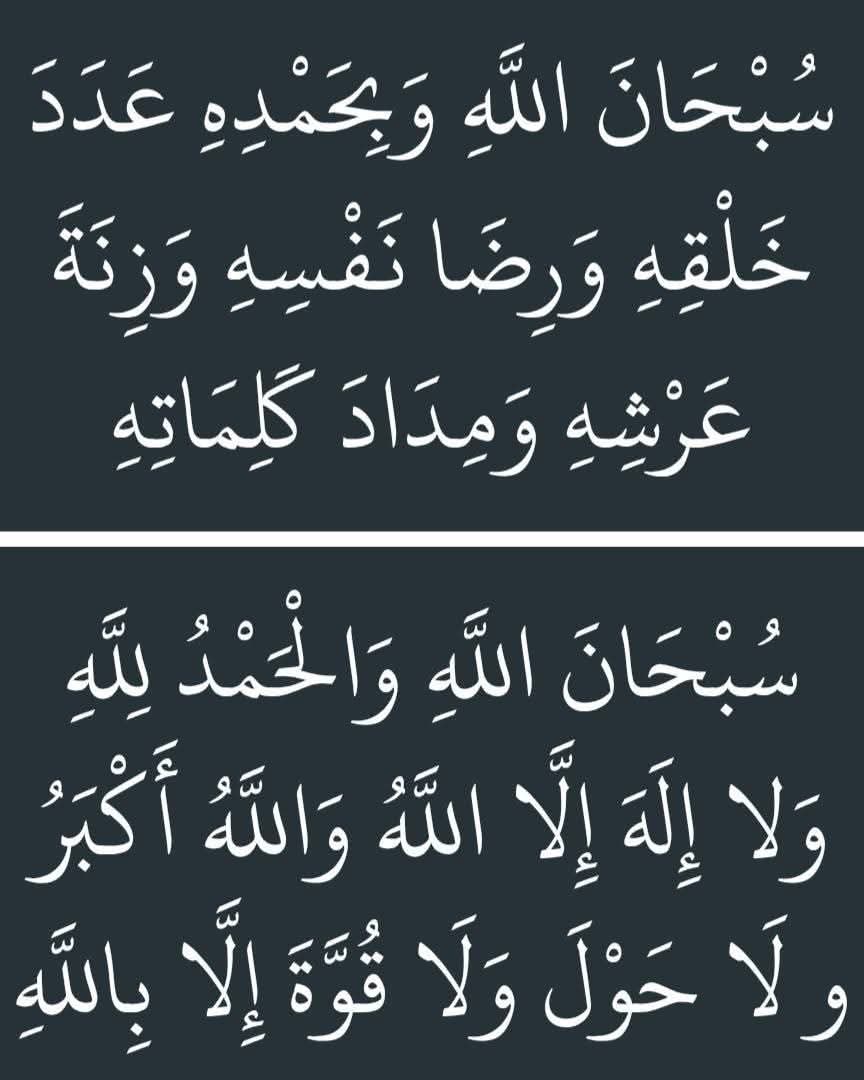 سُبْحَانَ اللَّهِ وَبِحَمْدِهِ عَدَدَ
خَلْقِهِ وَرِضَا نَفْسِهِ وَزِنَةَ
عَرْشِهِ وَمِدَادَ كَلِمَاتِهِ
سُبْحَانَ اللَّهِ وَالْحَمْدُ لِلَّهِ
وَلا إِلَهَ إِلَّا اللَّهُ وَاللَّهُ أَكْبَرُ
و لَا حَوْلَ وَلَا قُوَّةَ إِلَّا بِاللَّهِ